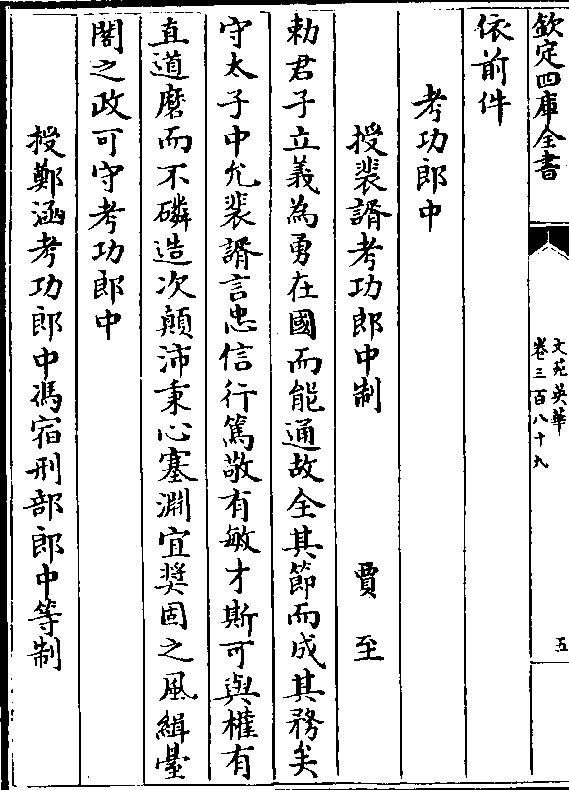 欽定四庫全書
文苑英華
卷三百八十九
五
依前件
考功郎中
授裴諝考功郎中制 賈至
勅君子立義為勇在國而能通故全其節而成其務矣
守太子中允裴諝言忠信行篤敬有敏才斯可與權有
直道磨而不磷造次顛沛秉心塞淵宜奬固之風緝臺
閣之政可守考功郎中
授鄭涵考功郎中馮宿刑部郎中等制